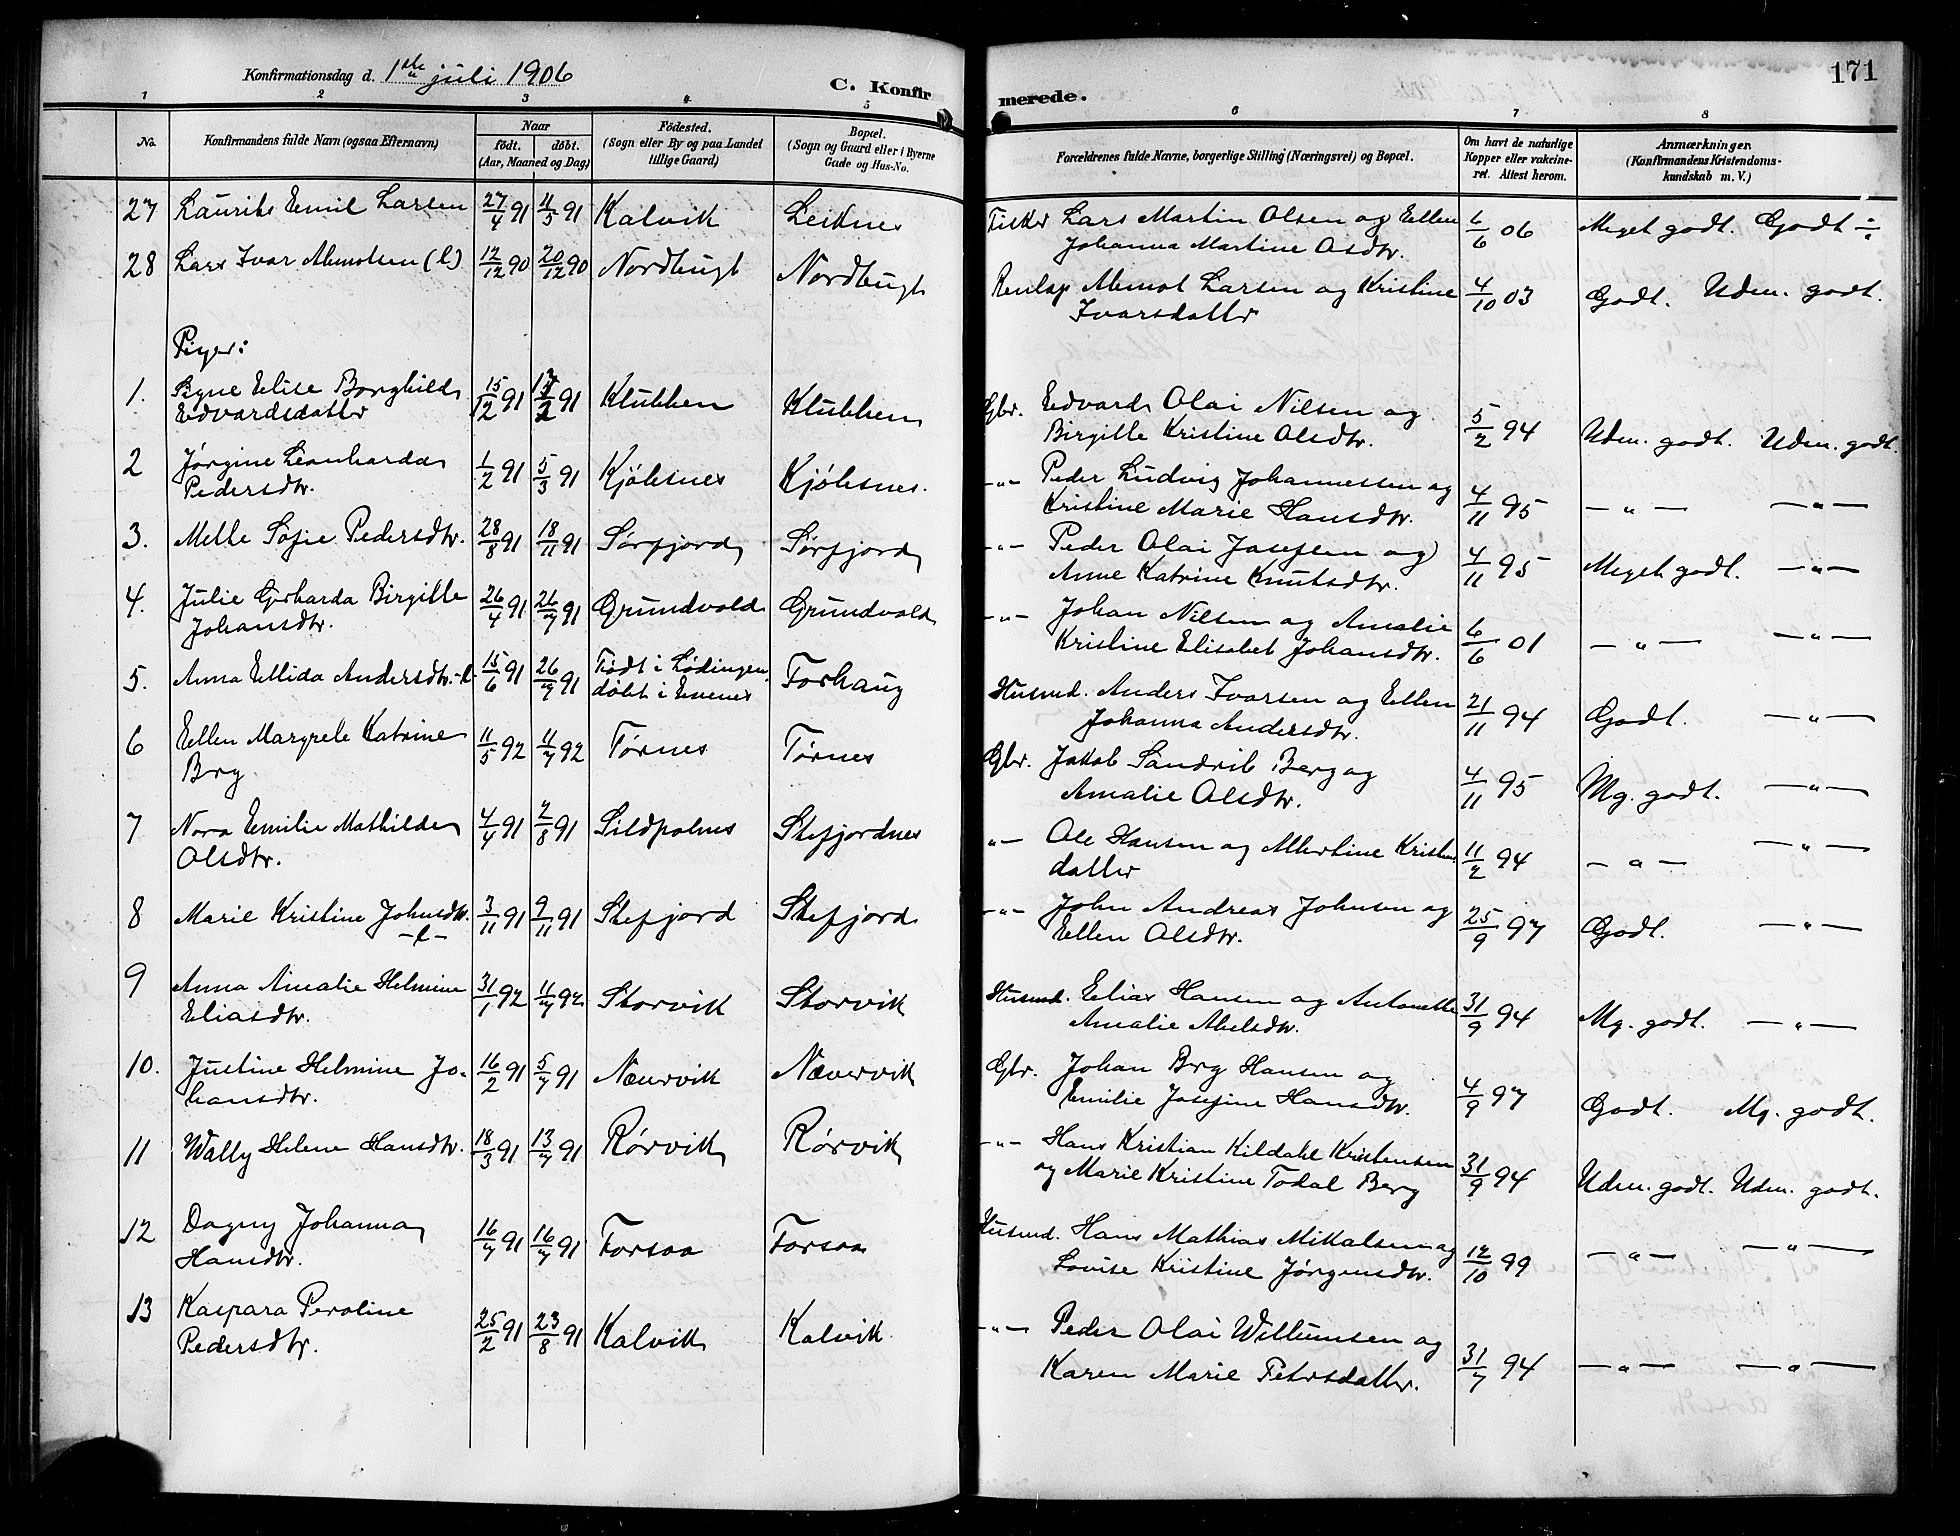 171
Konfirmationsdag d. 1ste juli 1906
C. Konfirmerede.
1 2 3 4 5 6 7 8
No.
Konfirmandens fulde Navn (ogsaa Efternavn)
Naar
født. døbt.
(Aar, Maaned og Dag)
Fødested.
(Sogn eller By og paa Landet
tillige Gaard)
Bopæl.
(Sogn og Gaard eller i Byerne
Gade og Hus-No.
Forældrenes fulde Navne, borgerlige Stilling (Næringsvei) og Bopæl.
Om havt de naturlige
Kopper eller vakcine-
ret. Attest herom.
Anmærkninger.
(Konfirmandens Kristendoms-
kundskab m. V.)
27 Laurits Emil Larsen 27/4 91 4/5 91 Kalvik Leiknes Fisker Lars Martin Olsen og Ellen 6/6 06 Meget godt. Godt ÷
Johanna Martine Olsdtr.
28 Lars Ivar Abmolsen (l) 12/12 90 20/12 90 Nordbugt Nordbugt Renlap Larsen og Kristine 4/10 03 Godt. Udm. godt.
Ivarsdatter
Piger:
1. Signe Elise Borghild 15/12 91 91 Klubben Klubben Gbr. Edvard Olai Nilsen og 5/2 94 Udm. godt. Udm. godt.
Edvardsdatter Birgitte Kristine Olsdtr.
2 Jørgine Leonharda 1/2 91 5/3 91 Kjølesnes Kjølesnes. -"- Peder Ludvig Johannessen og 4/11 95 -"- -"-
Pedersdtr. Kristine Marie Hansdtr.
3. Melle Sofie Pedersdtr. 28/8 91 18/11 91 Sørfjord Sørfjord -"- Peder Olai Josefsen og 4/11 95 Meget godt. -"-
Anne Katrine Knutsdtr.
4. Julie Gerharda Birgitte 26/4 91 26/7 91 Grundvold Grundvold -"- Johan Nilsen og Amalie 6/6 01 -"- -"-
Johansdtr. Kristine Elisabet Johansdtr.
5. Anna Ellida Andersdtr. -l- 15/6 91 26/7 91 Født i Lødingen, Forhaug Husmd. Anders Ivarsen og Ellen 21/11 94 Godt. -"-
døbt i Evenes Johanna Andersdtr.
6 Ellen Margrete Katrine 11/5 92 11/7 92 Tørnes Tørnes Gbr. Jakob Sandrib Berg og 4/11 95 Mg. godt. -"-
Berg Amalie Olsdtr.
7 Nora Emilie Mathilde 4/4 91 2/8 91 Sildpolnes Stefjordnes "- Ole Hansen og Albertine Kristen 11/2 94 -"- -"-
Olsdtr. datter
8 Marie Kristine Johnsdtr. 3/11 91 9/11 91 Stefjord Stefjord -"- John Andreas Johnsen og 25/9 97 Godt. -"-
-l- Ellen Olsdtr.
9 Anna Amalie Helmine 31/1 92 11/7 92 Storvik Storvik Husmd. Elias Hansen og Antonette 31/9 94 Mg. godt. -"-
Eliasdtr. Amalie Abelsdtr.
10. Justine Helmine Jo- 16/2 91 5/7 91 Nævervik Nævervik Gbr. Johan Berg Hansen og 4/9 97 Godt. Mg. godt.
hansdtr. Emilie Josefine Hansdtr.
11 Wally Helene Hansdtr. 18/3 91 13/7 91 Rørvik Rørvik -"- Hans Kristian Kildahl Kristensen 31/9 94 Udm. godt. Udm. godt.
og Marie Kristine Todal Berg
12 Dagny Johanna 16/7 91 16/7 91 Forsaa Forsaa Husmd. Hans Mathias Mikalsen og 12/10 99 -"- -"-
Hansdtr. Lovise Kristine Jørgensdtr.
13 Kaspara Peroline 25/2 91 23/8 91 Kalvik Kalvik -"- Peder Olai Willumsen og 31/7 94 -"- -"-
Pedersdtr. Karen Marie Petersdatter.